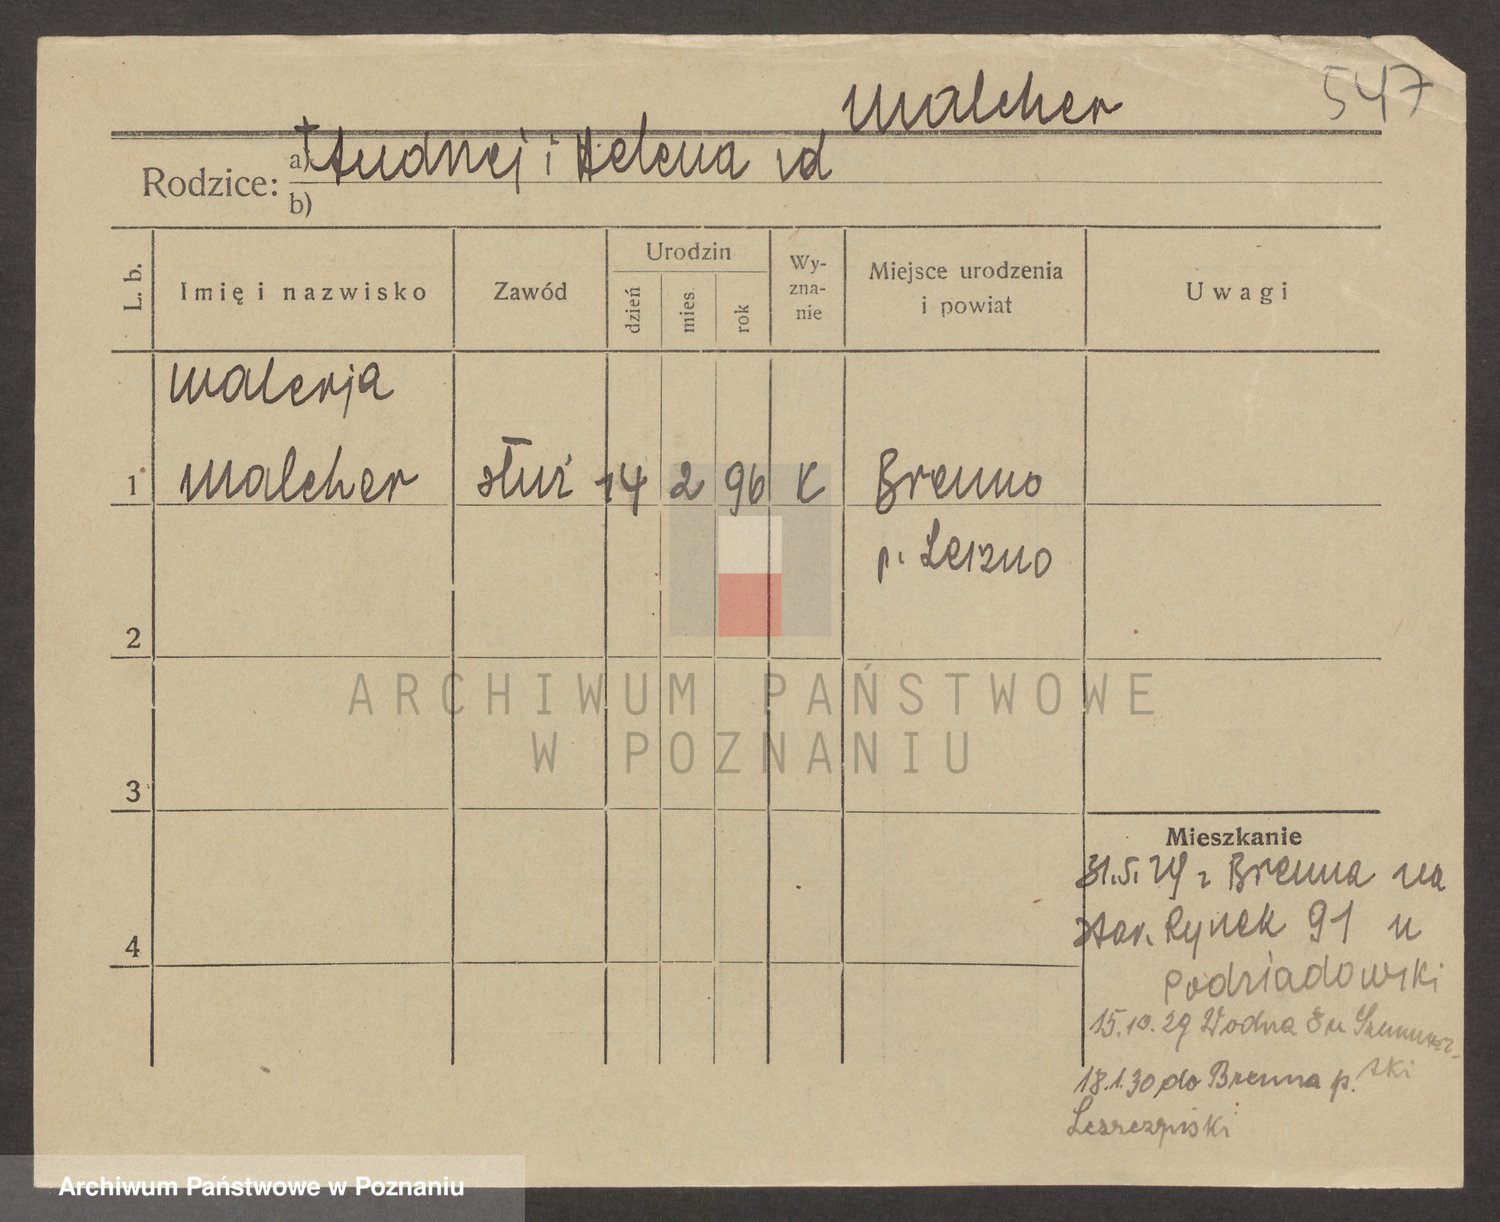 547
Malcher
Rodzice: a) † Andrzej i Helena vd
b)
L. b. Imię i nazwisko Zawód Urodzin dzień mies. rok Wy-zna-nie Miejsce urodzenia i powiat Uwagi
Walerja
1 Malcher służ 14 2 96 K Brenno
p. Leszno
2
ARCHIWUM PAŃSTWOWE
W POZNANIU
3
Mieszkanie
31.5.29 z Brenna na
Star. Rynek 91 u
4
Podziadowski
15.10.29 Wodna 8 u
ski
18.1.30 do Brenna p.
Archiwum Państwowe w Poznaniu